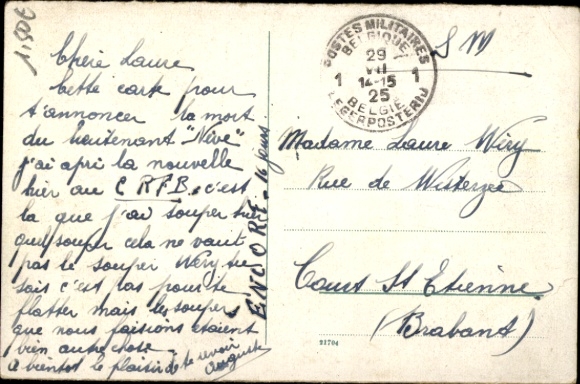 1,50€
Chère Laure
Cette carte pour
t'annoncer la mort
du lieutenant "Nève"
j'ai apri la nouvelle
hier au C R F B. c'est
la que j'ai souper hier
quel souper cela ne vaut
pas le souper Wéry tu
sais c'est pas pour te
flatter mais les soupers
que nous faisions étaient
bien autre chose.
a bientôt le plaisir de te revoir
Auguste
ENCORE 16 jours
POSTES MILITAIRES
BELGIQUE
29
VII
1 14-15 1
25
BELGIË
LEGERPOSTERIJ
S M
Madame Laure Wéry
Rue de Wisterzée
Court St Etienne
(Brabant)
21704